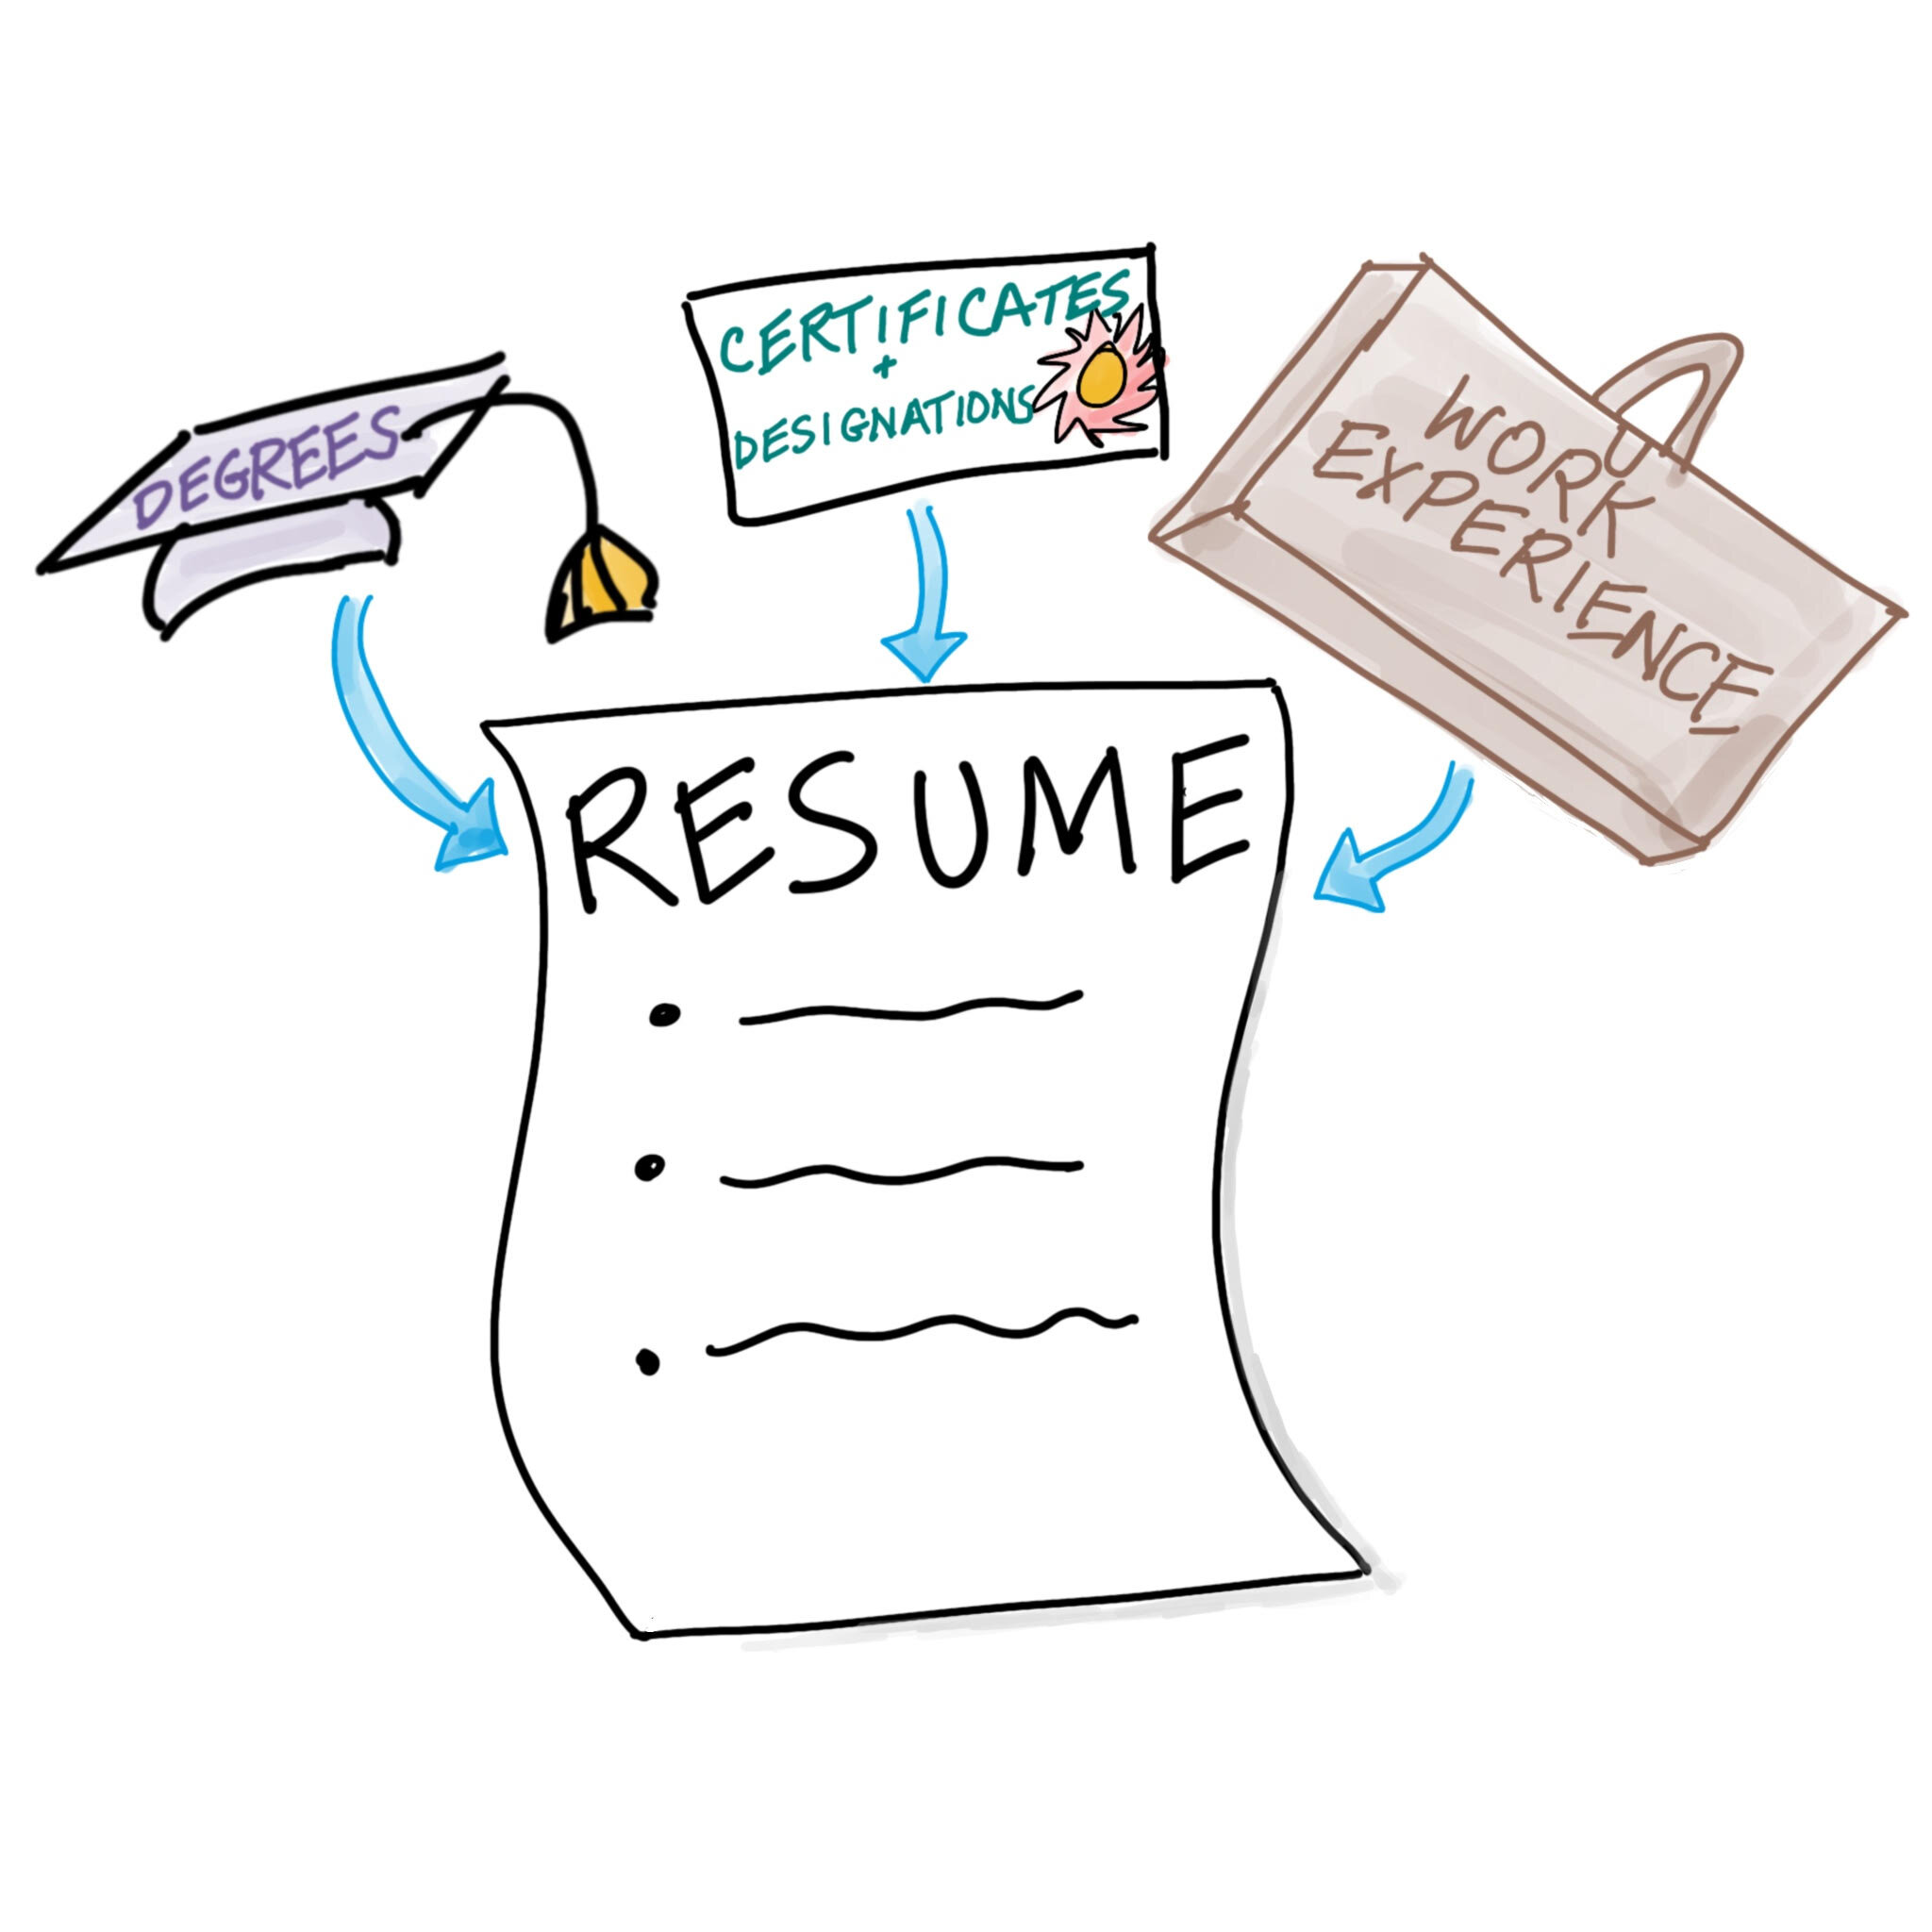 DEGREES
CERTIFICATES
+
DESIGNATIONS
WORK
EXPERIENCE
RESUME